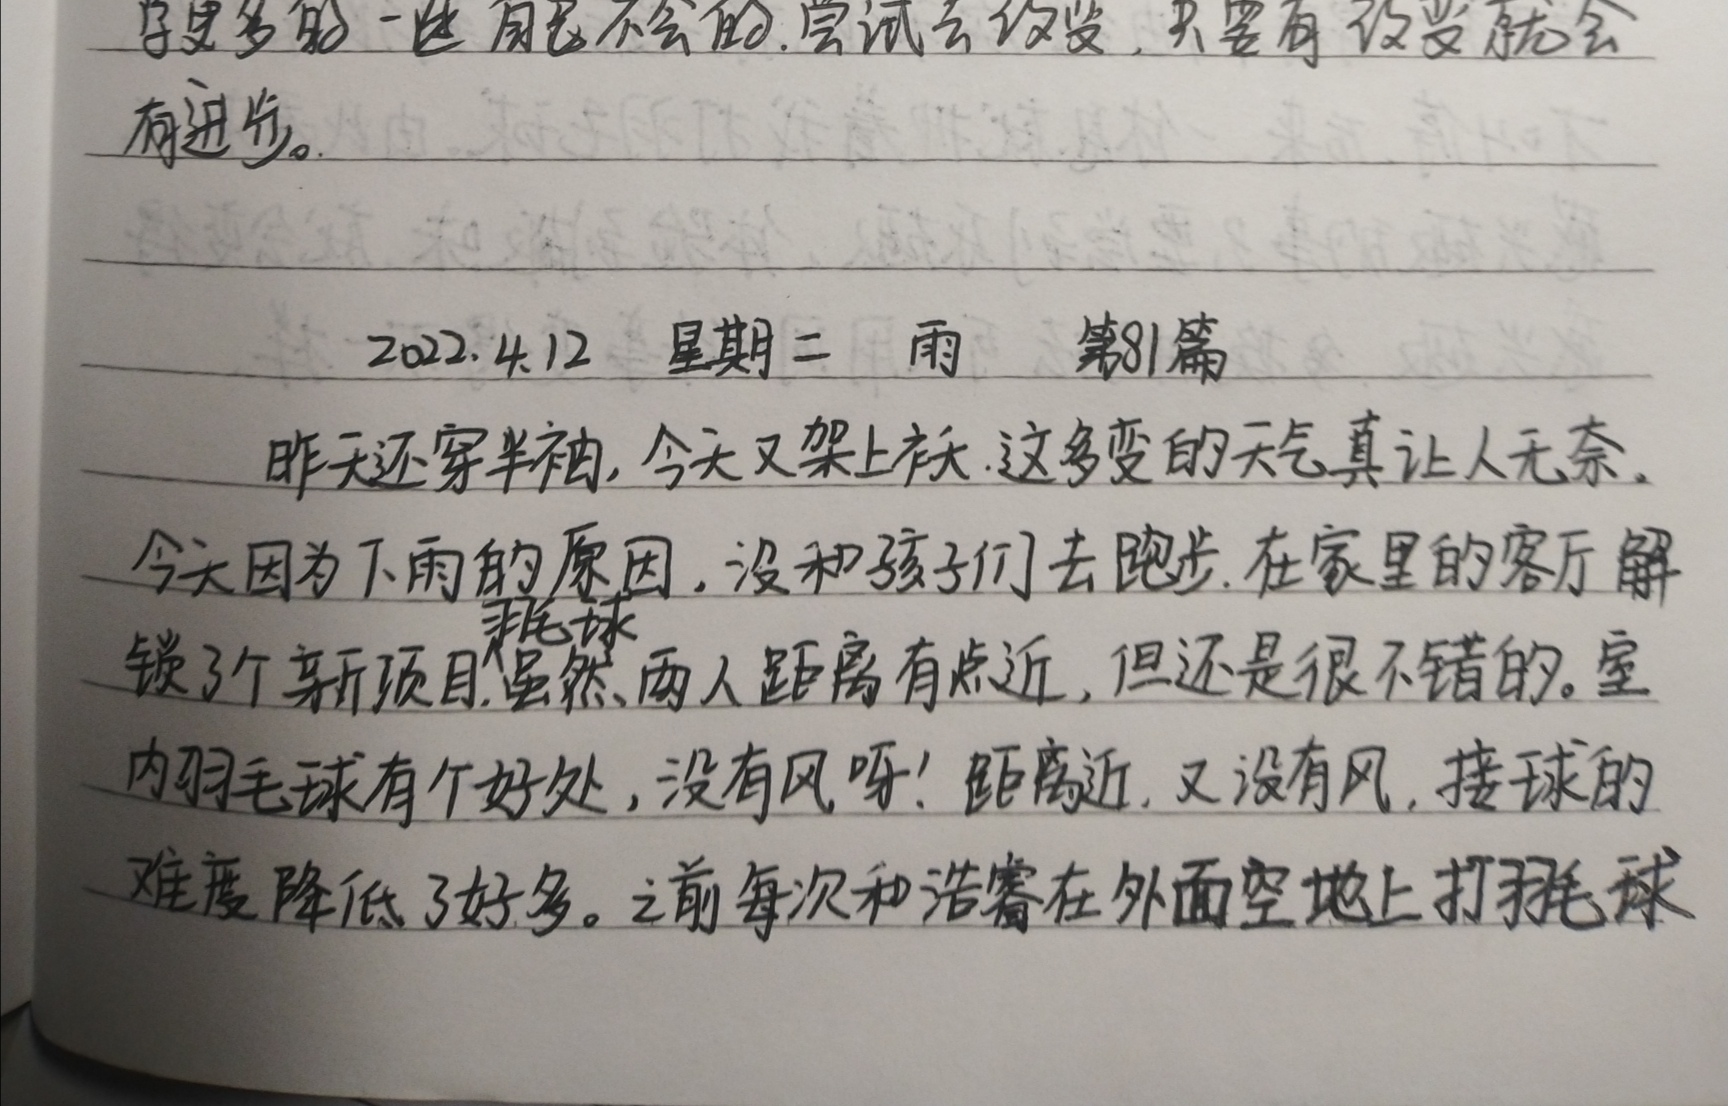 学更多的一些自己不会的.尝试去改变,只要有改变就会
有进步。
2022.4.12 星期二 雨 第81篇
昨天还穿半袖,今天又架上袄.这多变的天气真让人无奈.
今天因为下雨的原因.没和孩子们去跑步.在家里的客厅解
羽毛球
锁了个新项目.虽然、两人距离有点近,但还是很不错的。室
内羽毛球有个好处,没有风呀!距离近.又没有风.接球的
难度降低了好多。之前每次和浩睿在外面空地上打羽毛球